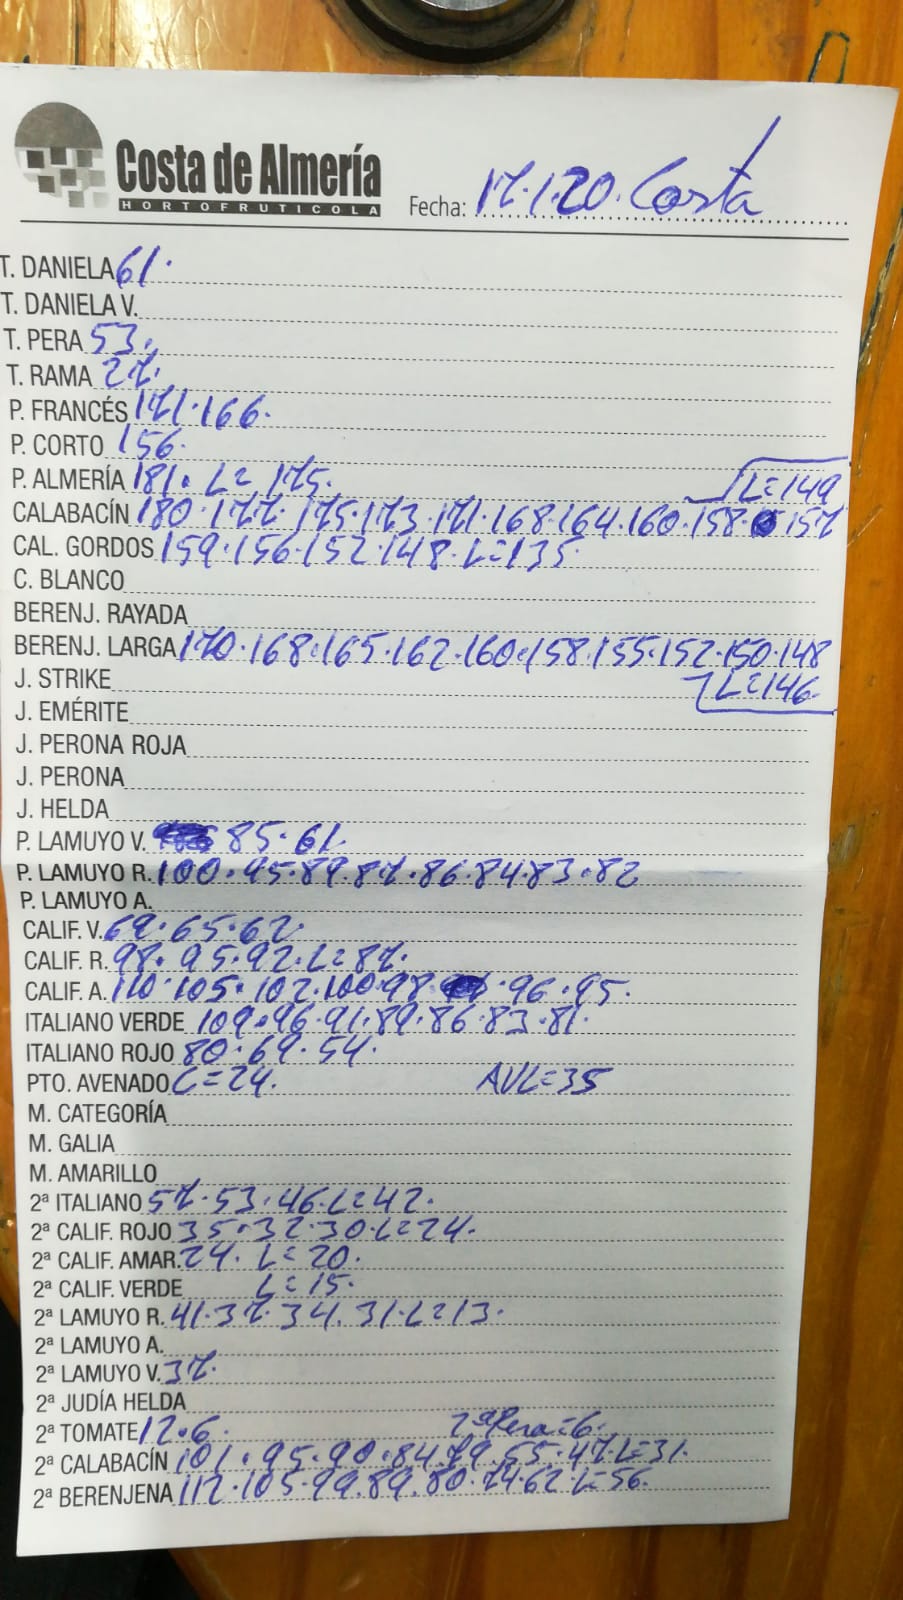 Costa de Almería
HORTOFRUTICOLA
Fecha: 17.1.20. Costa
T. DANIELA 61.
T. DANIELA V.
T. PERA 53.
T. RAMA 27.
P. FRANCÉS 171.166.
P. CORTO 156.
P. ALMERÍA 181. L= 175.
L=149
CALABACÍN 180.177.175.173.171.168.164.160.158. 157
CAL. GORDOS 159.156.152.148.L=135
C. BLANCO
BERENJ. RAYADA
BERENJ. LARGA 170.168.165.162.160.158.155.152.150.148
J. STRIKE L=146.
J. EMÉRITE
J. PERONA ROJA
J. PERONA
J. HELDA
P. LAMUYO V. 85.61.
P. LAMUYO R. 100.95.89.87.86.84.83.82
P. LAMUYO A.
CALIF. V. 69.65.62.
CALIF. R. 98.95.92.L=87.
CALIF. A. 110.105.102.100.98. .96.95.
ITALIANO VERDE 109.96.91.89.86.83.81.
ITALIANO ROJO 80.69.54.
PTO. AVENADO L=24. AVL=35
M. CATEGORÍA
M. GALIA
M. AMARILLO
2ª ITALIANO 57.53.46.L=42.
2ª CALIF. ROJO 35.32.30.L=24.
2ª CALIF. AMAR. 24. L=20.
2ª CALIF. VERDE L=15.
2ª LAMUYO R. 41.37.34.31.L=13.
2ª LAMUYO A.
2ª LAMUYO V. 37.
2ª JUDÍA HELDA
2ª TOMATE 12.6. 2ª Pera=6.
2ª CALABACÍN 101.95.90.84.79.55.47.L=31.
2ª BERENJENA 112.105.99.89.80.74.62.L=56.